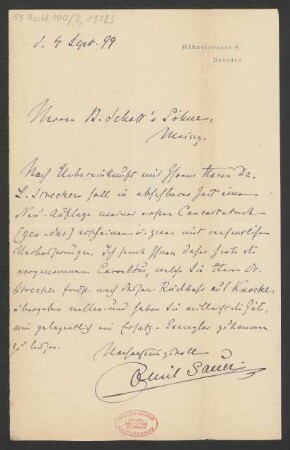 Hähnelstrasse 8.
Dresden
d. 4 Sept. 99
Herren B. Schott's Söhne
Mainz.
Nach Uebereinkunft mit Ihrem Herrn Dr.
L. Strecker soll in absehbarer Zeit eine
Neu-Auflage meiner ersten Concertetude
erscheinen u. zwar mit
Ich sende Ihnen daher heute die
Correktur, welche Sie Herrn Dr.
Strecker nach Rückkehr
übergeben wollen und haben Sie vielleicht die Güte,
mir gelegentlich ein Ersatz-Exemplar zukommen
zu lassen.
Hochachtungsvoll
Emil Sauer